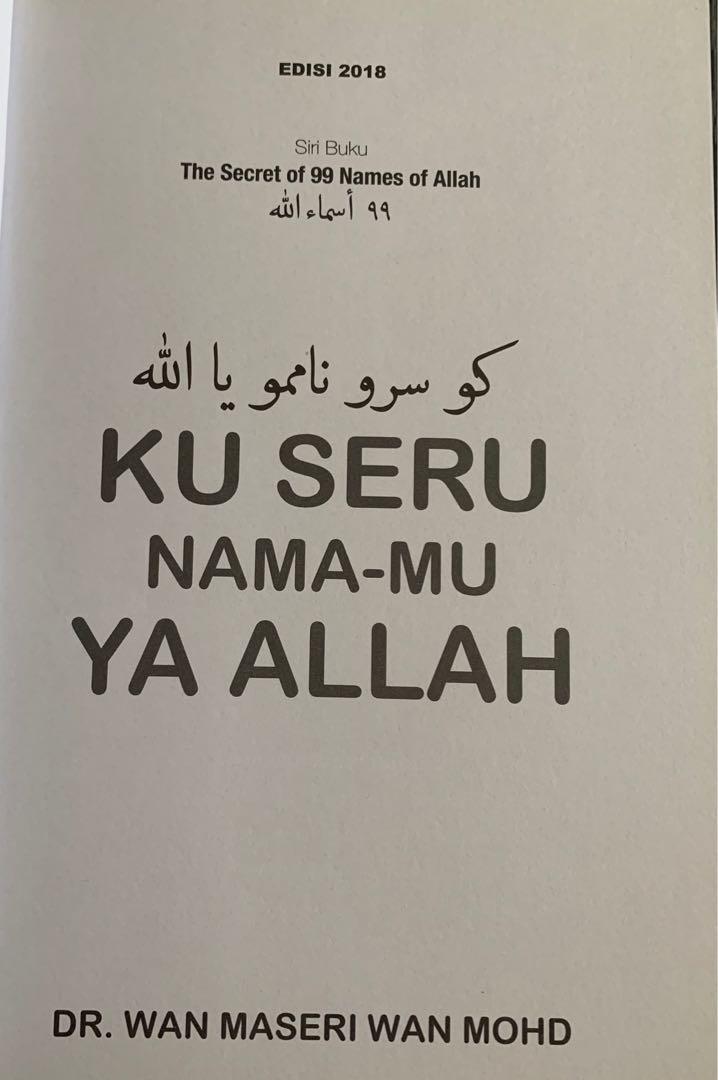 EDISI 2018
Siri Buku
The Secret of 99 Names of Allah
٩٩ أسماء الله
كو سرو ناممو يا الله
KU SERU
NAMA-MU
YA ALLAH
DR. WAN MASERI WAN MOHD